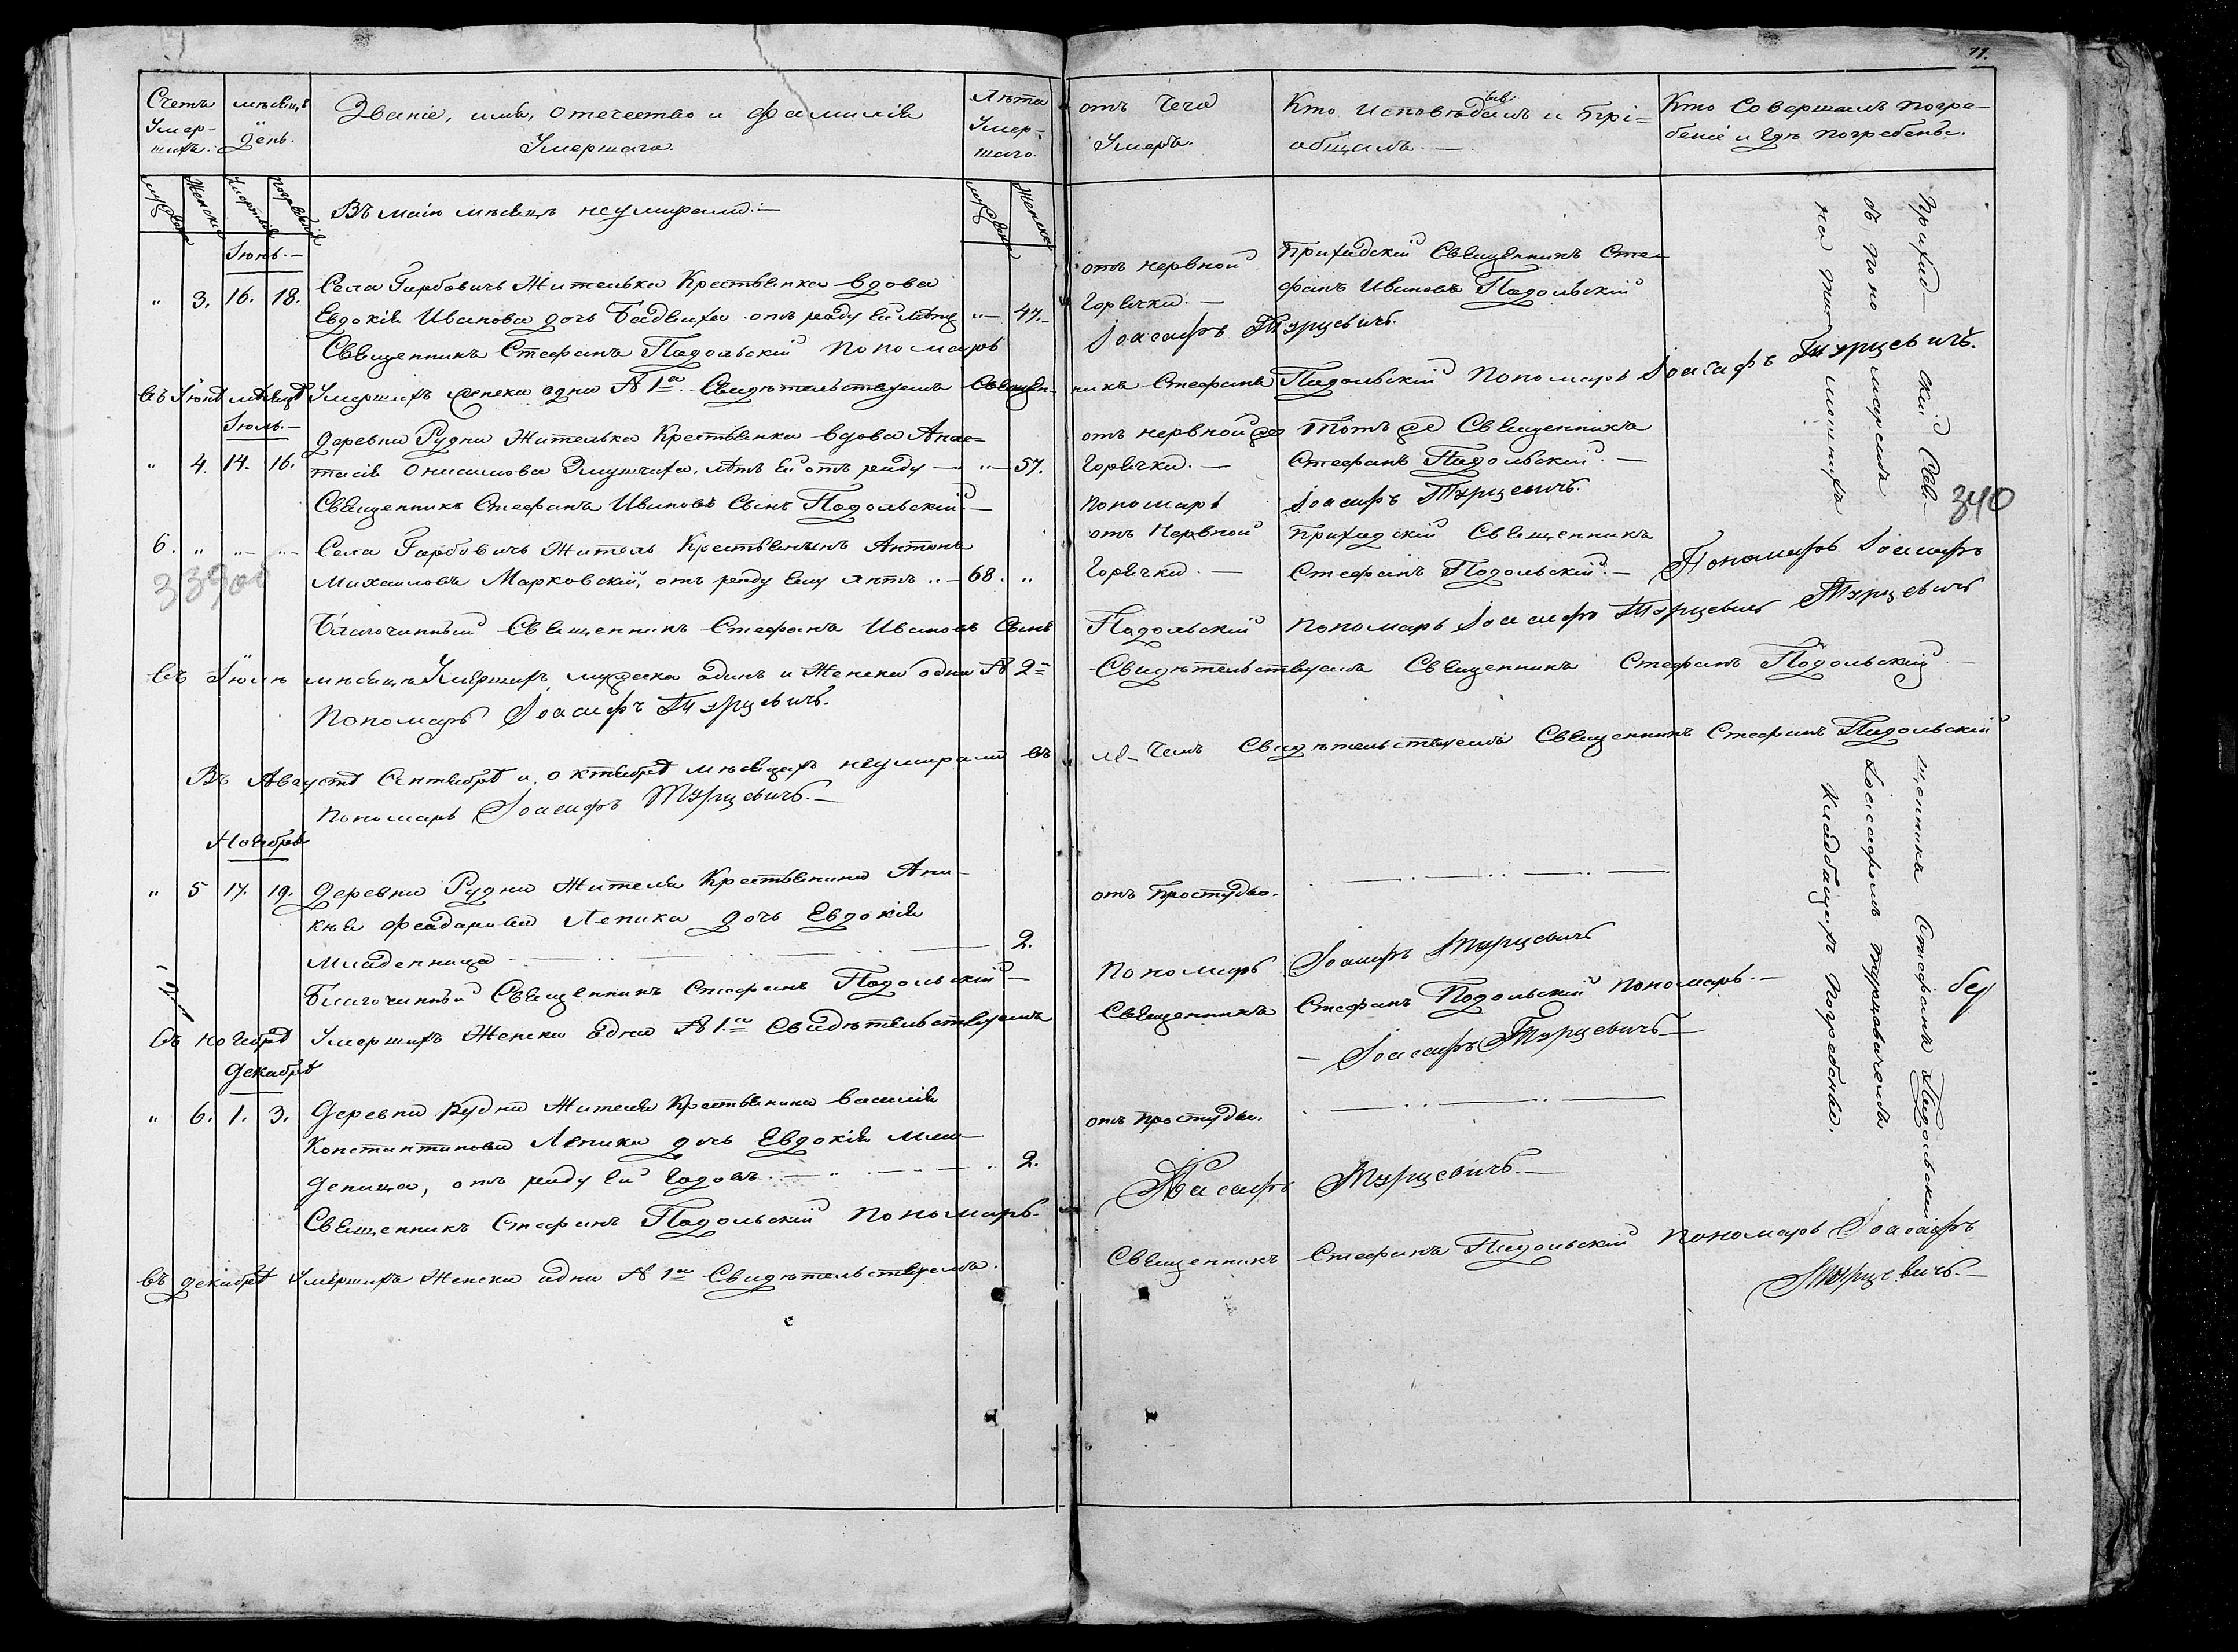 77.
Счетъ Умер-шихъ. мѣсяцъ День. Званіе, имя, отечество и Фамилія Умершаго. Лѣта Умер-шаго. отъ Чего Умеръ. Кто Исповѣдывалъ и Прі=общалъ. — Кто Совершалъ погре-беніе и гдѣ погребены.
мужеска Женска Умертвія погребенія мужеска Женска
Въ маіи мѣсяцѣ неумирали.—
Іюнь.—
Села Гарбовичь Жителька Крестьянка вдова
" 3. 16. 18. Евдокія Иванова дочь отъ роду ей лѣтъ " — 47.
отъ нервной Горячки. —
Приходскій Священникъ Сте-
фанъ Ивановъ Подольскій
Священникъ Стефанъ Подольскій Пономарь Іоасафъ Турцевичъ.
Въ Іюнѣ мѣсяцѣ Умершихъ женска одна № 1а. Свидѣтельствуемъ Священ-никъ Стефанъ Подольскій Пономарь Іоасафъ Турцевичъ.
Іюль.—
деревни Рудни Жителька Крестьянка вдова Анас=
" 4. 14. 16. тасія Онисимова лѣтъ ей отъ роду — " — 57.
отъ нервной же Горячки. —
Тотъ же Священникъ
Стефанъ Подольскій. —
Священникъ Стефанъ Ивановъ Сынъ Подольскій. — Пономарь Іоасафъ Турцевичъ.
6. " " — " — Села Гарбовичь Житель Крестьянинъ Антонъ
Михаиловъ Марковскій, отъ роду ему лѣтъ " — 68. "
отъ Нервной Горячки. —
Приходскій Священникъ
Стефанъ Подольскій. — Пономарь Іоасафъ Турцевичъ
33900
Благочинный Священникъ Стефанъ Ивановъ Сынъ Подольскій пономарь Іоасафъ Турцевичъ
Въ Іюлѣ мѣсяцѣ Умершихъ мужеска одинъ и Женска одна № 2а Свидѣтельствуемъ Священникъ Стефанъ Подольскій —
Пономарь Іоасафъ Турцевичъ.
Въ Августѣ Сентябрѣ и октябрѣ мѣсяцахъ неумирали въ Чемъ Свидѣтельствуемъ Священникъ Стефанъ Подольскій
Пономарь Іоасафъ Турцевичъ. —
Ноябрь
" 5 17. 19. деревни Рудни Жителя Крестьянина Ани-
кія Феодорова Лепика дочь Евдокія
Младенница — 2.
отъ Простуды.
Благочинный Священникъ Стефанъ Подольскій — Пономарь Іоасафъ Турцевичъ
Въ Ноябрѣ Умершихъ Женска одна № 1.а Свидѣтельствуемъ Священникъ Стефанъ Подольскій Пономарь. —
— Іоасафъ Турцевичъ —
Декабрѣ
" 6. 1. 3. Деревни Рудни Жителя Крестьянина Василія
Константинова Лепика дочь Евдокія мла-
деница, отъ роду ей Годовъ. — " — 2.
отъ простуды.
Священникъ Стефанъ Подольскій Пономарь. Іоасафъ Турцевичъ. —
Въ декабрѣ Умершихъ Женска одна № 1а Свидѣтельствуемъ. Священникъ Стефанъ Подольскій Пономарь Іоасафъ
Турцевичъ. —
Приход-скій Свя-щенникъ Стефанъ Подольскій
съ пономаремъ Іоасафомъ Турцевичемъ
на Кладбищехъ Погребены.
340